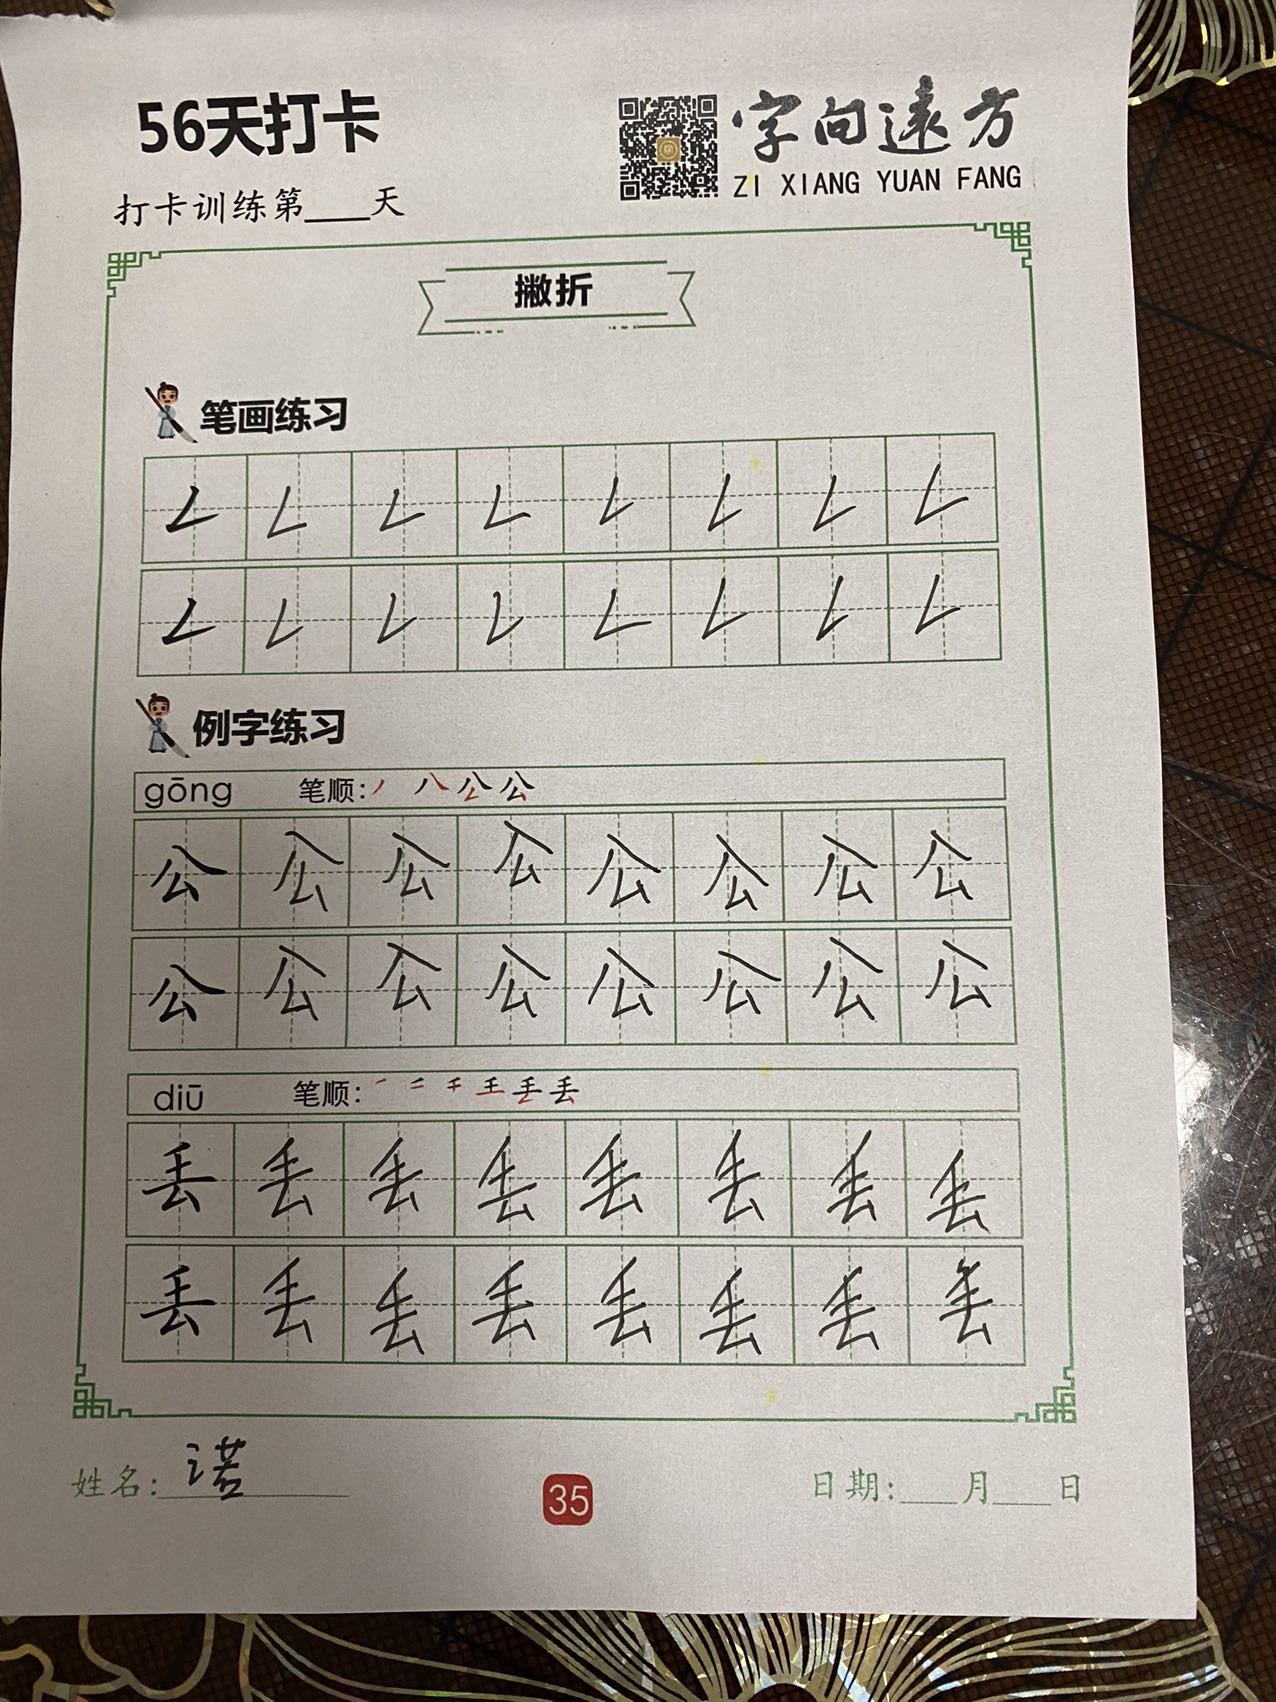 56天打卡
字向遠方
ZI XIANG YUAN FANG
打卡训练第___天
撇折
笔画练习
𠃋 𠃋 𠃋 𠃋 𠃋 𠃋 𠃋 𠃋
𠃋 𠃋 𠃋 𠃋 𠃋 𠃋 𠃋 𠃋
例字练习
gōng 笔顺: 丿 八 公 公
公 公 公 公 公 公 公 公
公 公 公 公 公 公 公 公
diū 笔顺: 一 二 千 王 丢 丢
丢 丢 丢 丢 丢 丢 丢 丢
丢 丢 丢 丢 丢 丢 丢 丢
姓名: 诺
35
日期:___月___日